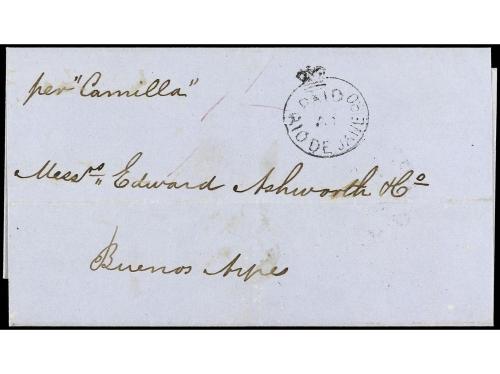 per "Camilla"
PAID
RIO DE JANEIRO
Mess.rs Edward Ashworth & Co
Buenos Ayres